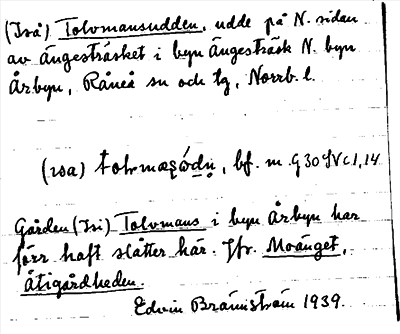 (Iså) Tolvmansudden, udde på N. sidan
av ängesträsket i byn Ängesträsk N. byn
Årbyn, Råneå sn och tg, Norrb. l.
bf. m. G30 IV c 1, 14
Gården (Isi) Tolvmans i byn Årbyn har
förr haft slåtter här. Jfr. Moänget,
Åtigårdheden.
Edvin Brännström 1939.